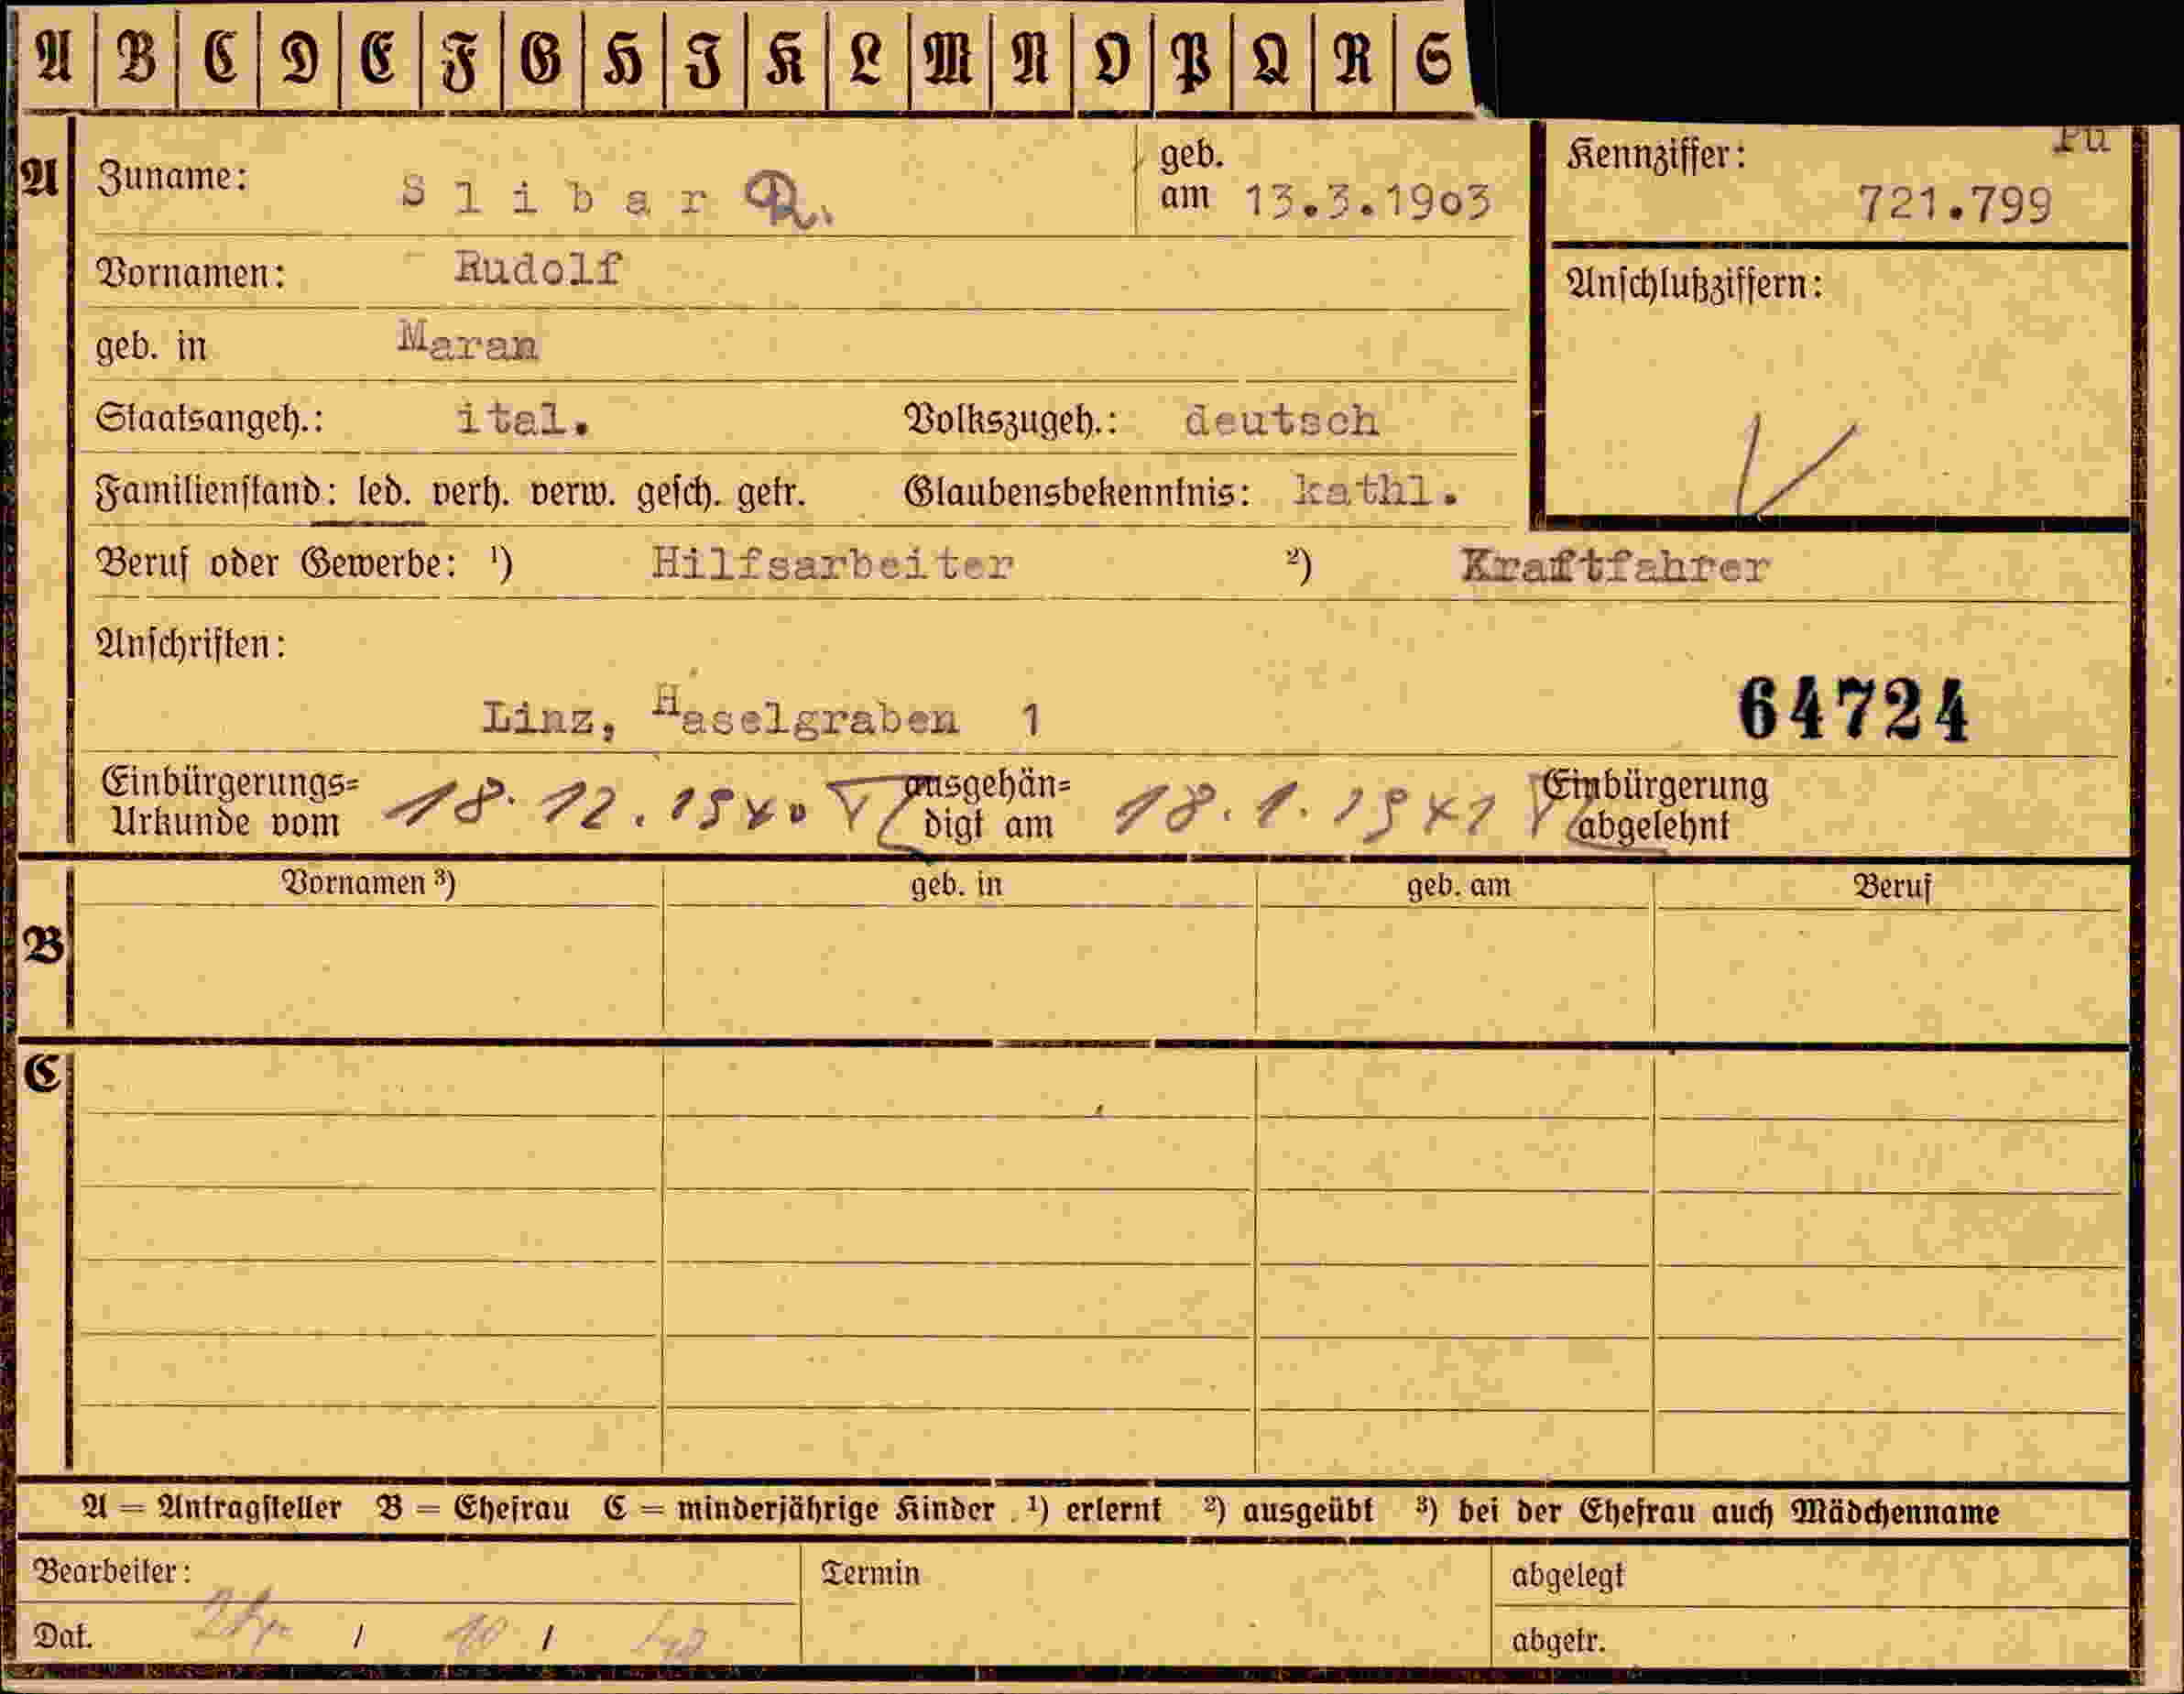 A B C D E F G H I K L M N O P Q R S
A Zuname: Slibar R. geb. am 13.3.1903
Kennziffer: 721.799
Vornamen: Rudolf
Anschlußziffern:
geb. in Maran
Staatsangeh.: ital. Volkszugeh.: deutsch
Familienstand: led. verh. verw. gesch. getr. Glaubensbekenntnis: kathl.
Beruf oder Gewerbe: ¹) Hilfsarbeiter ²) Kraftfahrer
Anschriften:
Linz, Haselgraben 1
64724
Einbürgerungs= Urkunde vom 18.12.1940 ausgehän= digt am 18.1.1941 Einbürgerung abgelehnt
Vornamen ³) geb. in geb. am Beruf
B
C
A = Antragsteller B = Ehefrau C = minderjährige Kinder ¹) erlernt ²) ausgeübt ³) bei der Ehefrau auch Mädchenname
Bearbeiter: Termin abgelegt
Dat. / / abgetr.